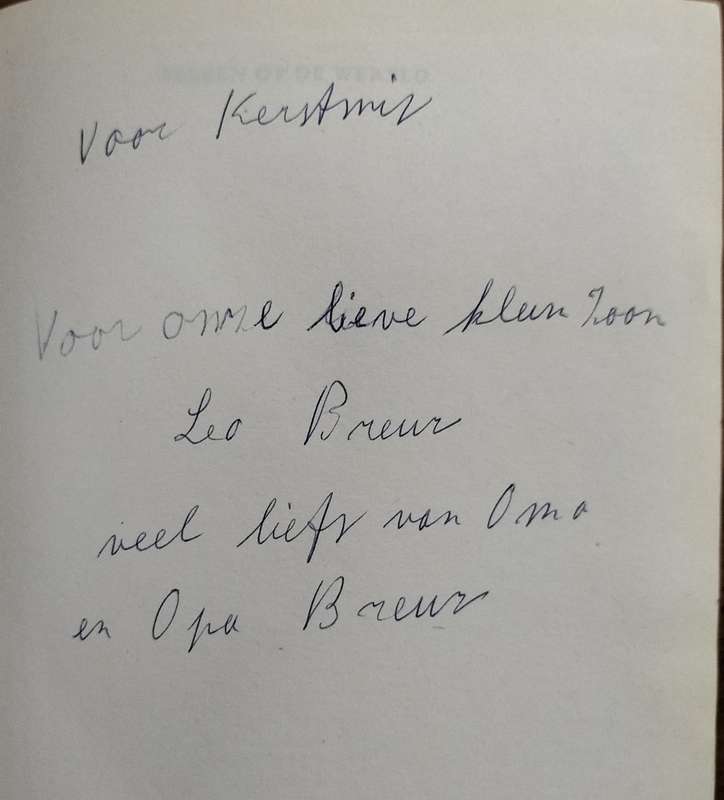 Voor Kerstmis
Voor onze lieve klein zoon
Leo Breur
veel liefs van Oma
en Opa Breur